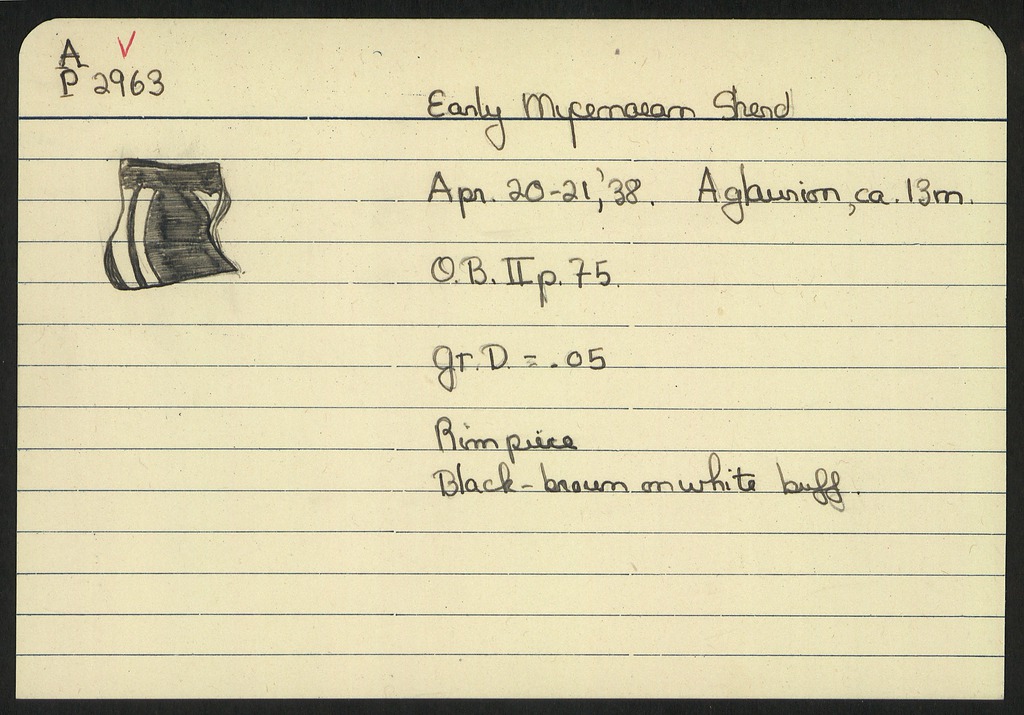 A
P 2963
Early Mycenaean Sherd
Apr. 20-21, '38. Aglaurion, ca. 13m.
O.B. II p. 75.
Gr. D. = .05
Rim piece
Black-brown on white buff.